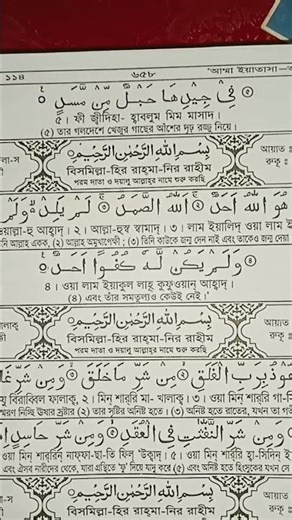 ১১৪ ৬৫৮ 'আম্মা ইয়াতাসা—
فِيْ جِيْدِهَا حَبْلٌ مِّنْ مَّسَدٍ
৫। ফী জ্বীদিহা- হ্বাবলুম মিম মাসাদ।
(৫) তার গলদেশে খেজুর গাছের আঁশের দৃঢ় রজ্জু নিয়ে।
بِسْمِ اللهِ الرَّحْمٰنِ الرَّحِيْمِ
আয়াত :
বিসমিল্লা-হির রাহ্মা-নির রাহীম
রুকূ :
পরম দাতা ও দয়ালু আল্লাহ্‌র নামে শুরু করছি
هُوَ اللهُ اَحَدٌ اَللهُ الصَّمَدُ لَمْ يَلِدْ وَلَمْ
য়াল্লা-হু আহ্বাদ্। ২। আল্লা-হুছ্ ছামাদ্। ৩। লাম্ ইয়ালিদ্ ওয়া লাম্
আল্লাহ একক, (২) আল্লাহ্ অমুখাপেক্ষী; (৩) তিনি কাউকে জন্ম দেন নাই এবং তাকেও জন্ম দেয়া
وَلَمْ يَكُنْ لَّهٗ كُفُوًا اَحَدٌ
৪। ওয়া লাম্ ইয়াকুল লাহূ কুফুওয়ান্ আহ্বাদ্।
(৪) এবং তাঁর সমতুল্যও কেউই নেই।
بِسْمِ اللهِ الرَّحْمٰنِ الرَّحِيْمِ
আয়াত
বিসমিল্লা-হির রাহ্মা-নির রাহীম
রুকূ :
পরম দাতা ও দয়ালু আল্লাহ্‌র নামে শুরু করছি
عُوْذُ بِرَبِّ الْفَلَقِ مِنْ شَرِّ مَا خَلَقَ وَمِنْ شَرِّ
বিরাব্বিল ফালাক্ব। ২। মিন্ শার্‌রি মা- খালাক্ব। ৩। ওয়া মিন্ শার্‌রি
(২) তার সৃষ্টির অনিষ্ট হতে। (৩) অনিষ্ট হতে রাতের, যখন তা
وَمِنْ شَرِّ النَّفّٰثٰتِ فِي الْعُقَدِ وَمِنْ شَرِّ حَاسِدٍ
ওয়া মিন্ শার্‌রিন্ নাফ্‌ফা-ছা-তি ফিল্ 'উক্বাদ্। ৫। ওয়া মিন্ শার্‌রি হ্বা-সিদিন্
এবং ঐসব নারীদের থেকে, যারা গ্রন্থিতে 'ফুঁ' দিয়ে যাদু করে (৫) এবং অনিষ্ট হতে হিংসুকের যখন সে
بِسْمِ اللهِ الرَّحْمٰنِ الرَّحِيْمِ
আয়াত
বিসমিল্লা-হির রাহ্মা-নির রাহীম